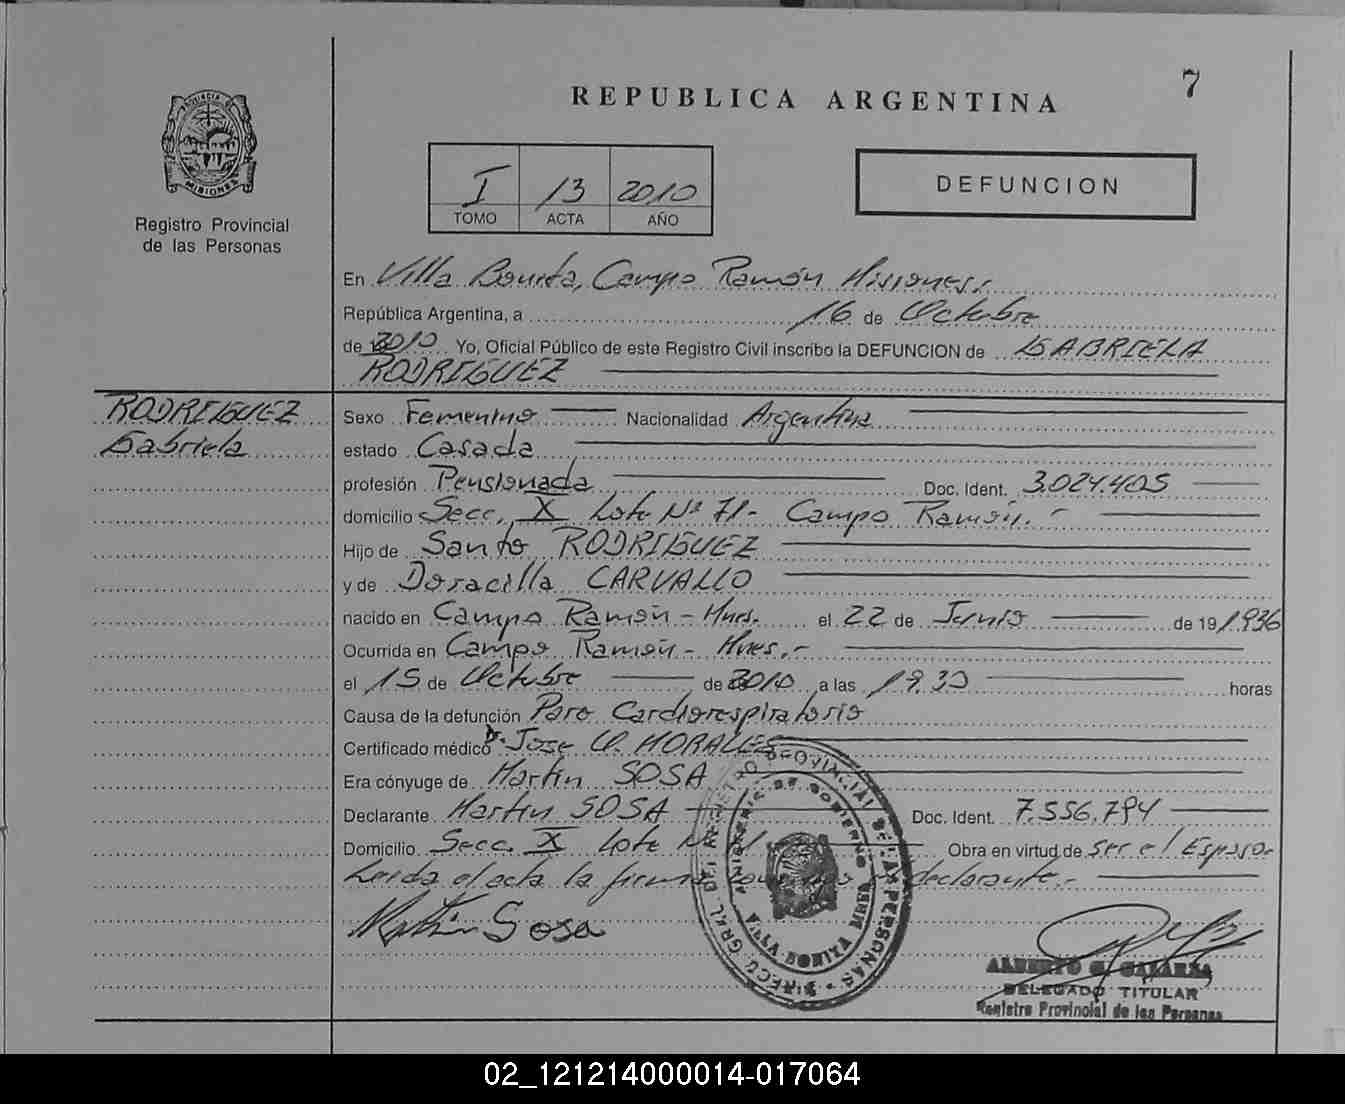 7
REPUBLICA ARGENTINA
PROVINCIA DE
MISIONES
Registro Provincial
de las Personas
I 13 2010
TOMO ACTA AÑO
DEFUNCION
En Villa Bonita, Campo Ramón Misiones.
República Argentina, a 16 de Octubre
de 2010 Yo, Oficial Público de este Registro Civil inscribo la DEFUNCION de GABRIELA
RODRIGUEZ
RODRIGUEZ
Gabriela
Sexo Femenino Nacionalidad Argentina
estado Casada
profesión Pensionada Doc. Ident. 3.024.405
domicilio Secc. X Lote Nº 71- Campo Ramón.-
Hijo de Santo RODRIGUEZ
y de Doracilla CARVALLO
nacido en Campo Ramón - Mnes. el 22 de Junio de 19 1.936
Ocurrida en Campo Ramón - Mnes.-
el 15 de Octubre de 2010 a las 19.30 horas
Causa de la defunción Paro Cardiorespiratorio
Certificado médico Dr. Jose O. MORALES
Era cónyuge de Martin SOSA
Declarante Martin SOSA Doc. Ident. 7.556.794
Domicilio Secc. X Lote Obra en virtud de ser el Esposo.
Leida el acta la firma declarante.-
Martin Sosa
DIRECC. GRAL. DEL REGISTRO PROVINCIAL DE LAS PERSONAS
MINISTERIO DE GOBIERNO
VILLA BONITA
ALBERTO
DELEGADO TITULAR
Registro Provincial de las Personas
02_121214000014-017064